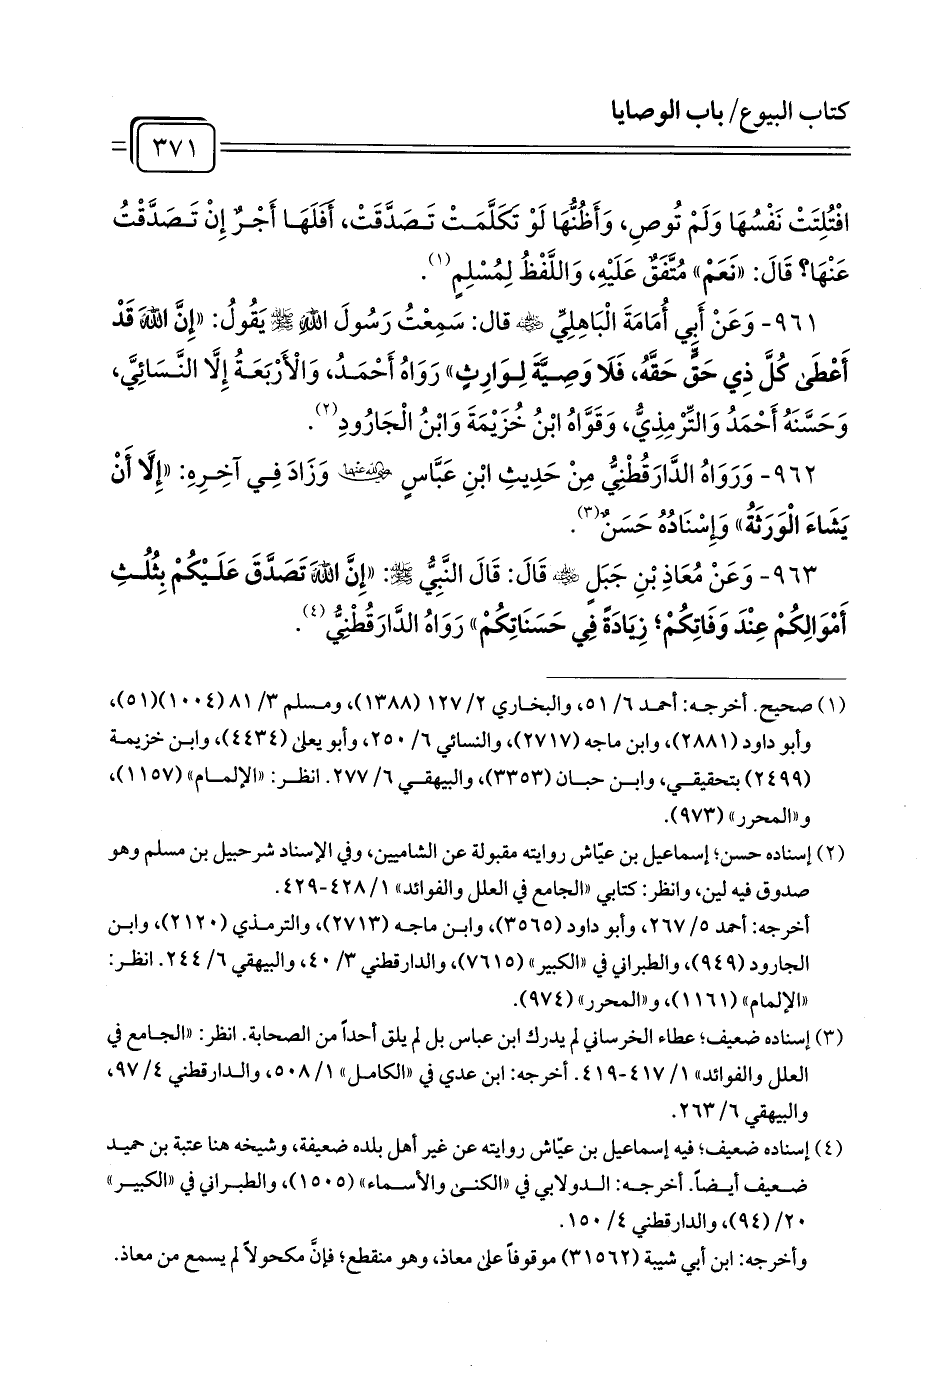 كتاب البيوع/ باب الوصايا
٣٧١
افْتُلِتَتْ نَفْسُهَا وَلَمْ تُوصِ، وَأَظُنُّهَا لَوْ تَكَلَّمَتْ تَصَدَّقَتْ، أَفَلَهَا أَجْرٌ إِنْ تَصَدَّقْتُ
عَنْهَا؟ قَالَ: «نَعَمْ» مُتَّفَقٌ عَلَيْهِ، وَاللَّفْظُ لِمُسْلِمٍ(١).
٩٦١- وَعَنْ أَبِي أُمَامَةَ الْبَاهِلِيِّ ﵁ قال: سَمِعْتُ رَسُولَ اللهِ ﷺ يَقُولُ: «إِنَّ اللهَ قَدْ
أَعْطَى كُلَّ ذِي حَقٍّ حَقَّهُ، فَلَا وَصِيَّةَ لِوَارِثٍ» رَوَاهُ أَحْمَدُ، وَالْأَرْبَعَةُ إِلَّا النَّسَائِيَّ،
وَحَسَّنَهُ أَحْمَدُ وَالتِّرْمِذِيُّ، وَقَوَّاهُ ابْنُ خُزَيْمَةَ وَابْنُ الْجَارُودِ(٢).
٩٦٢- وَرَوَاهُ الدَّارَقُطْنِيُّ مِنْ حَدِيثِ ابْنِ عَبَّاسٍ ﵄ وَزَادَ فِي آخِرِهِ: «إِلَّا أَنْ
يَشَاءَ الْوَرَثَةُ» وَإِسْنَادُهُ حَسَنٌ(٣).
٩٦٣- وَعَنْ مُعَاذِ بْنِ جَبَلٍ ﵁ قَالَ: قَالَ النَّبِيُّ ﷺ: «إِنَّ اللهَ تَصَدَّقَ عَلَيْكُمْ بِثُلُثِ
أَمْوَالِكُمْ عِنْدَ وَفَاتِكُمْ؛ زِيَادَةً فِي حَسَنَاتِكُمْ» رَوَاهُ الدَّارَقُطْنِيُّ(٤).
(١) صحيح. أخرجه: أحمد ٦/ ٥١، والبخاري ٢/ ١٢٧ (١٣٨٨)، ومسلم ٣/ ٨١ (١٠٠٤)(٥١)،
وأبو داود (٢٨٨١)، وابن ماجه (٢٧١٧)، والنسائي ٦/ ٢٥٠، وأبو يعلى (٤٤٣٤)، وابن خزيمة
(٢٤٩٩) بتحقيقي، وابن حبان (٣٣٥٣)، والبيهقي ٦/ ٢٧٧. انظر: «الإلمام» (١١٥٧)،
و«المحرر» (٩٧٣).
(٢) إسناده حسن؛ إسماعيل بن عيّاش روايته مقبولة عن الشاميين، وفي الإسناد شرحبيل بن مسلم وهو
صدوق فيه لين، وانظر: كتابي «الجامع في العلل والفوائد» ١/ ٤٢٨-٤٢٩.
أخرجه: أحمد ٥/ ٢٦٧، وأبو داود (٣٥٦٥)، وابن ماجه (٢٧١٣)، والترمذي (٢١٢٠)، وابن
الجارود (٩٤٩)، والطبراني في «الكبير» (٧٦١٥)، والدارقطني ٣/ ٤٠، والبيهقي ٦/ ٢٤٤. انظر:
«الإلمام» (١١٦١)، و«المحرر» (٩٧٤).
(٣) إسناده ضعيف؛ عطاء الخرساني لم يدرك ابن عباس بل لم يلق أحداً من الصحابة. انظر: «الجامع في
العلل والفوائد» ١/ ٤١٧-٤١٩. أخرجه: ابن عدي في «الكامل» ١/ ٥٠٨، والدارقطني ٤/ ٩٧،
والبيهقي ٦/ ٢٦٣.
(٤) إسناده ضعيف؛ فيه إسماعيل بن عيّاش روايته عن غير أهل بلده ضعيفة، وشيخه هنا عتبة بن حميد
ضعيف أيضاً. أخرجه: الدولابي في «الكنى والأسماء» (١٥٠٥)، والطبراني في «الكبير»
٢٠/ (٩٤)، والدارقطني ٤/ ١٥٠.
وأخرجه: ابن أبي شيبة (٣١٥٦٢) موقوفاً على معاذ، وهو منقطع؛ فإنَّ مكحولاً لم يسمع من معاذ.